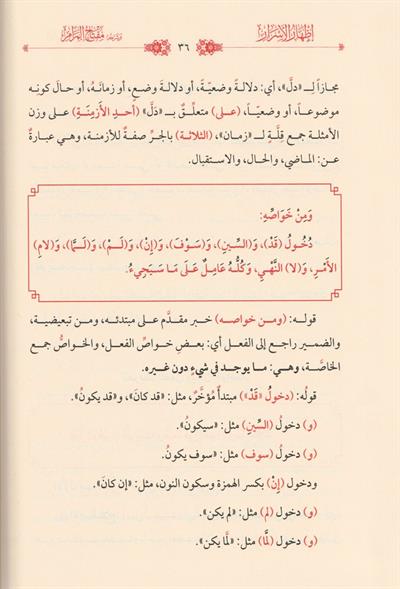 إظهار الأسرار
٣٦
مفتاح المرام
مجازاً لـ «دلَّ»، أي: دلالةً وضعيّةً، أو دلالة وضعٍ، أو زمانَهُ، أو حالَ كونِه
موضوعاً، أو وضعيّاً، (على) متعلّقٌ بـ «دَلَّ» (أحدِ الأَزْمِنَةِ) على وزن
الأمثلة جمع قِلَّةٍ لـ «زمان»، (الثلاثة) بالجرّ صفةٌ للأزمنة، وهي عبارةٌ
عن: الماضي، والحال، والاستقبال.
وَمِنْ خَوَاصِّهِ:
دُخُولُ (قَدْ)، وَ(السِّينِ)، وَ(سَوْفَ)، وَ(إِنْ)، وَ(لَمْ)، وَ(لَمَّا)، وَ(لامِ)
الأَمْرِ، وَ(لا) النَّهْيِ، وَكُلُّهُ عَامِلٌ عَلَى مَا سَيَجِيءُ.
قوله: (ومن خواصه) خبر مقدَّم على مبتدئه، ومن تبعيضية،
والضمير راجع إلى الفعل أي: بعض خواصّ الفعل، والخواصُّ جمع
الخاصَّة، وهي: ما يوجد في شيءٍ دون غيره.
قولُه: (دخولُ «قَدْ») مبتدأ مُؤخَّرٌ، مثل: «قد كانَ»، و«قد يكونُ».
(و) دخول (السِّينِ) مثل: «سيكونُ».
(و) دخولُ (سوف) مثل: «سوف يكونُ.
ودخول (إنْ) بكسر الهمزة وسكون النون، مثل: «إن كانَ».
(و) دخول (لم) مثل: «لم يكن».
(و) دخول (لمَّا) مثل: «لمَّا يكن».